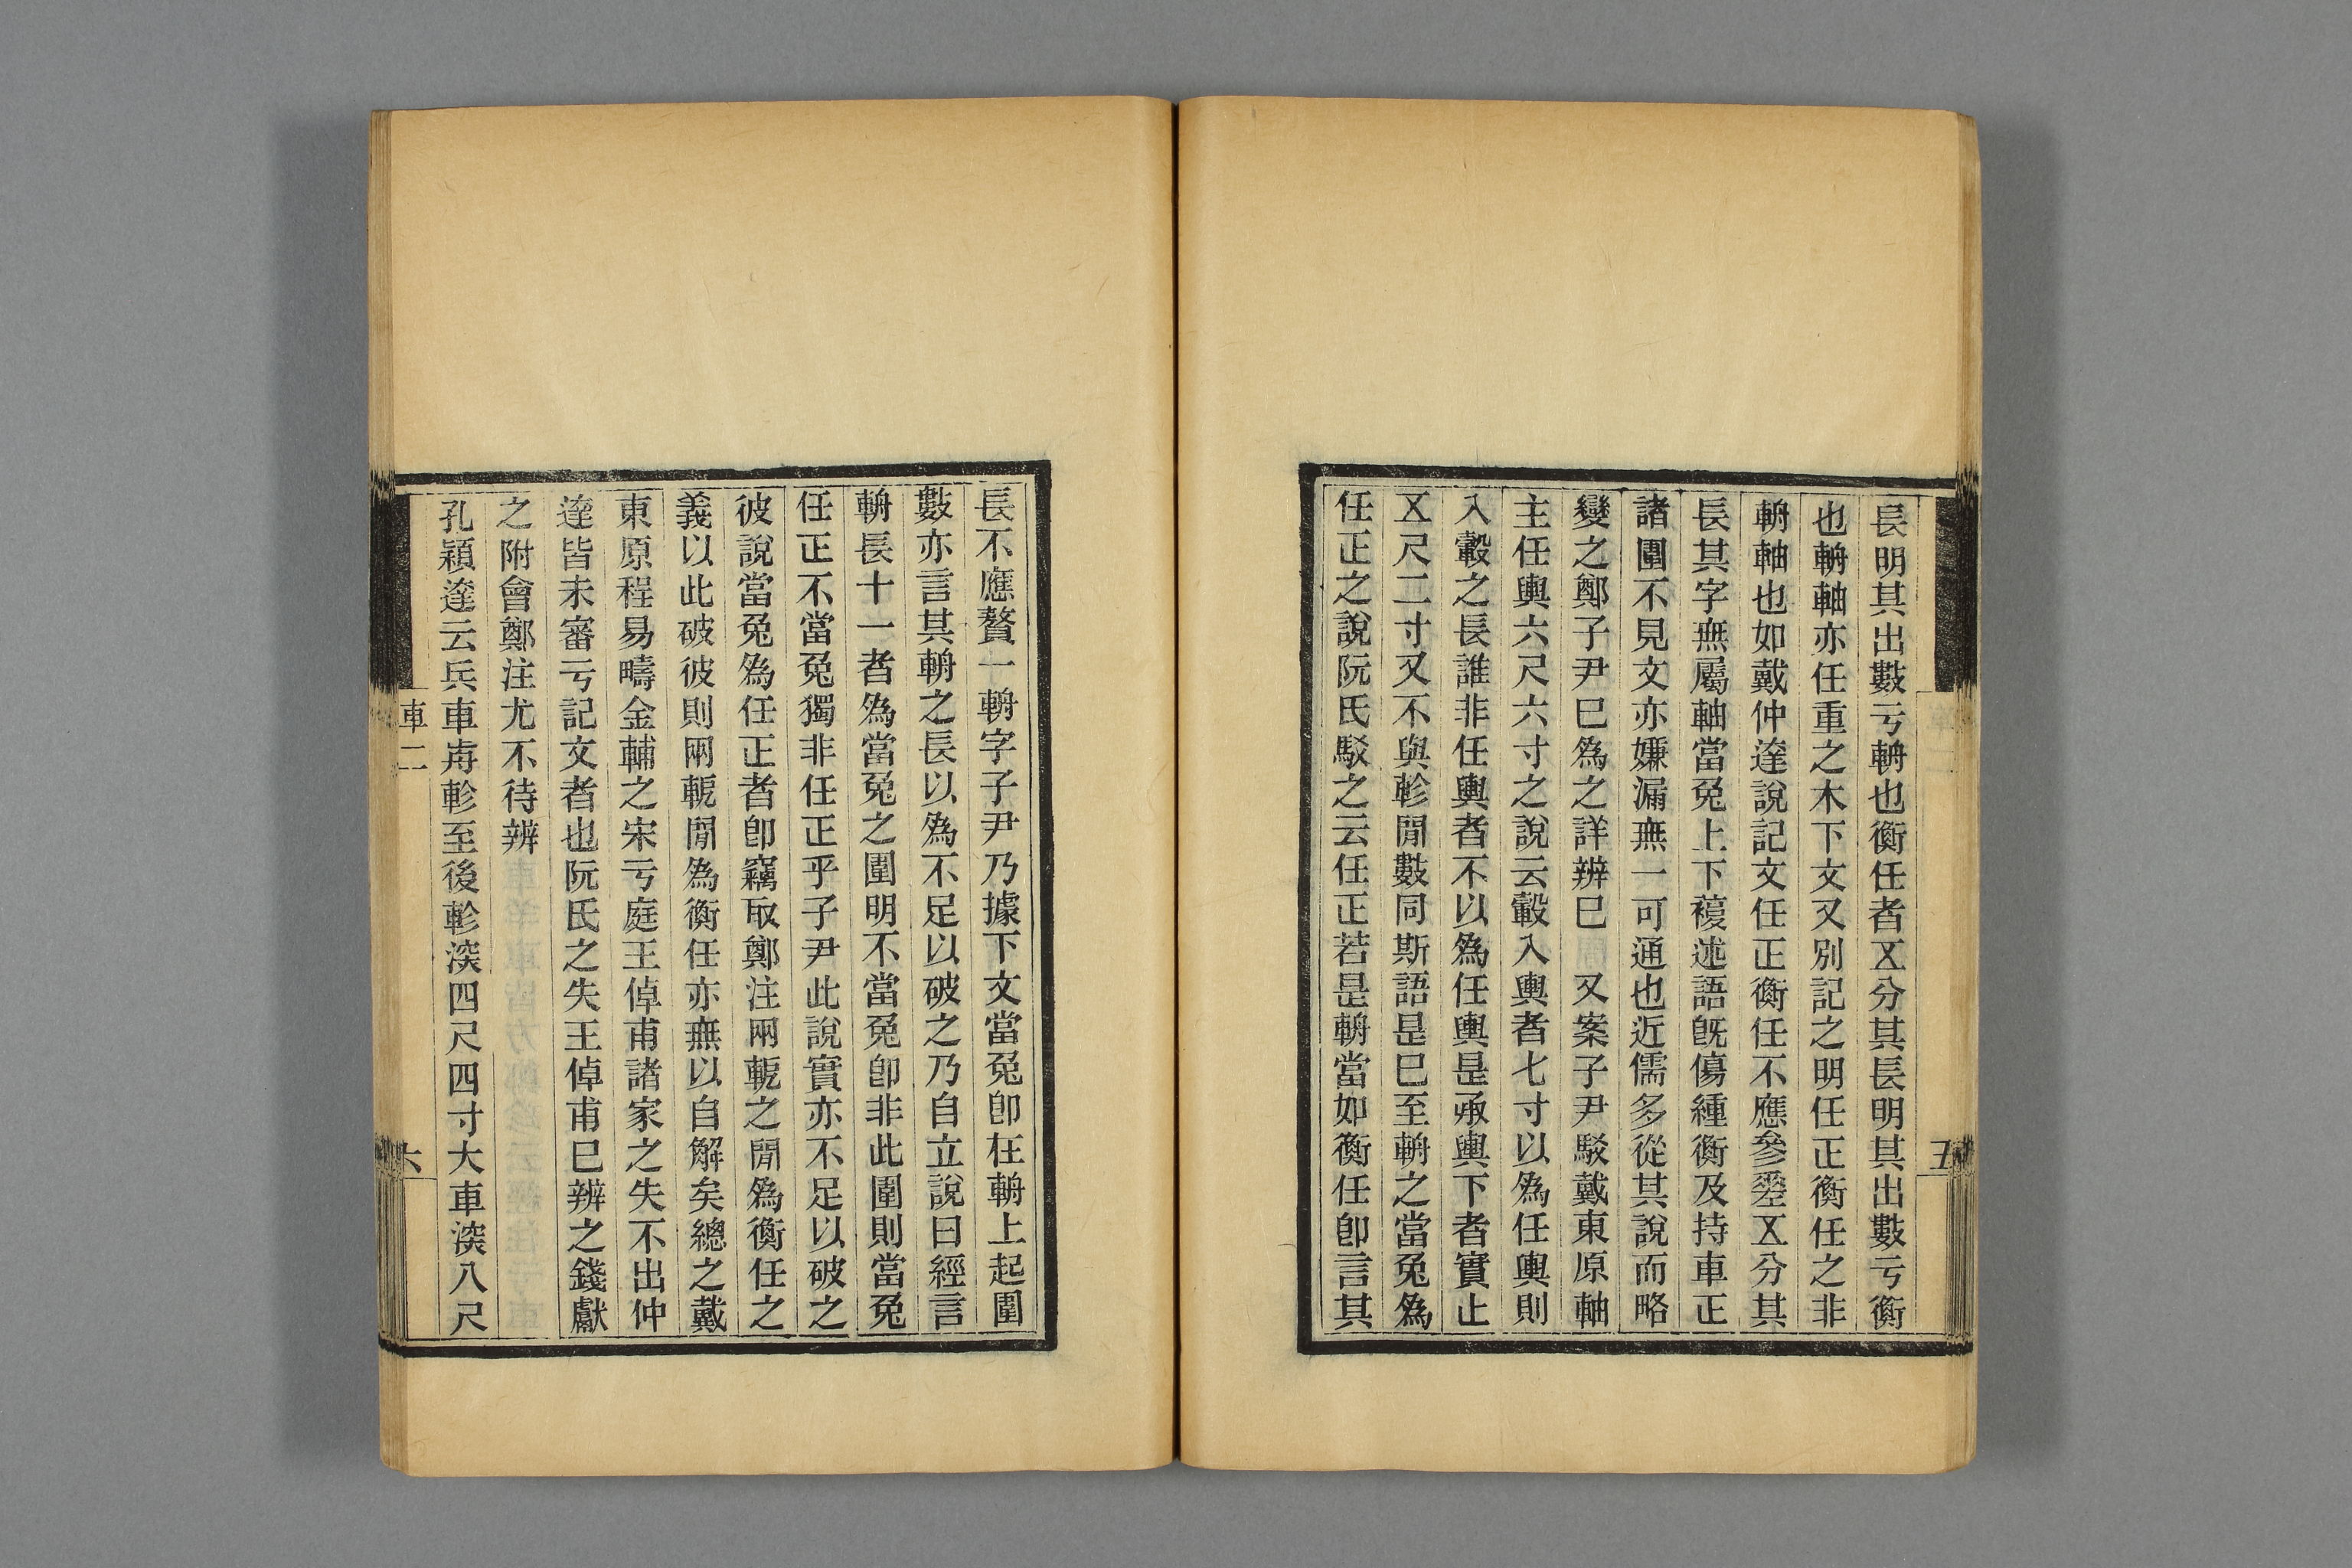 長明其出數亏輈也衡任者㐅分其長明其出數亏衡
也輈軸亦任重之木下文又別記之明任正衡任之非
輈軸也如戴仲達說記文任正衡任不應參㘴㐅分其
長其字無屬軸當兔上下複述語旣傷緟衡及持車正
諸圍不見文亦嫌漏無一可通也近儒多從其說而略
變之鄭子尹巳為之詳辨巳　又案子尹駁戴東原軸
主任輿六尺六寸之說云轂入輿者七寸以為任輿則
入轂之長誰非任輿者不以為任輿是承輿下者實止
㐅尺二寸又不與軫閒數同斯語是巳至輈之當兔為
任正之說阮氏駁之云任正若是輈當如衡任卽言其
五
長不應贅一輈字子尹乃據下文當兔卽在輈上起圍
數亦言其輈之長以為不足以破之乃自立說曰經言
輈長十一者為當兔之圍明不當兔卽非此圍則當兔
任正不當兔獨非任正乎子尹此說實亦不足以破之
彼說當兔為任正者卽竊取鄭注兩軶之閒為衡任之
義以此破彼則兩軶閒為衡任亦無以自解矣總之戴
東原程易疇金輔之宋亏庭王倬甫諸家之失不出仲
達皆未審亏記文者也阮氏之失王倬甫巳辨之錢獻
之附會鄭注尤不待辨
孔穎達云兵車歬軫至後軫深四尺四寸大車深八尺
車二
六